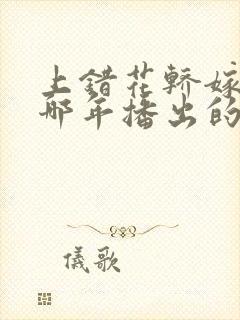 上错花轿嫁
哪年播出的
儀歌